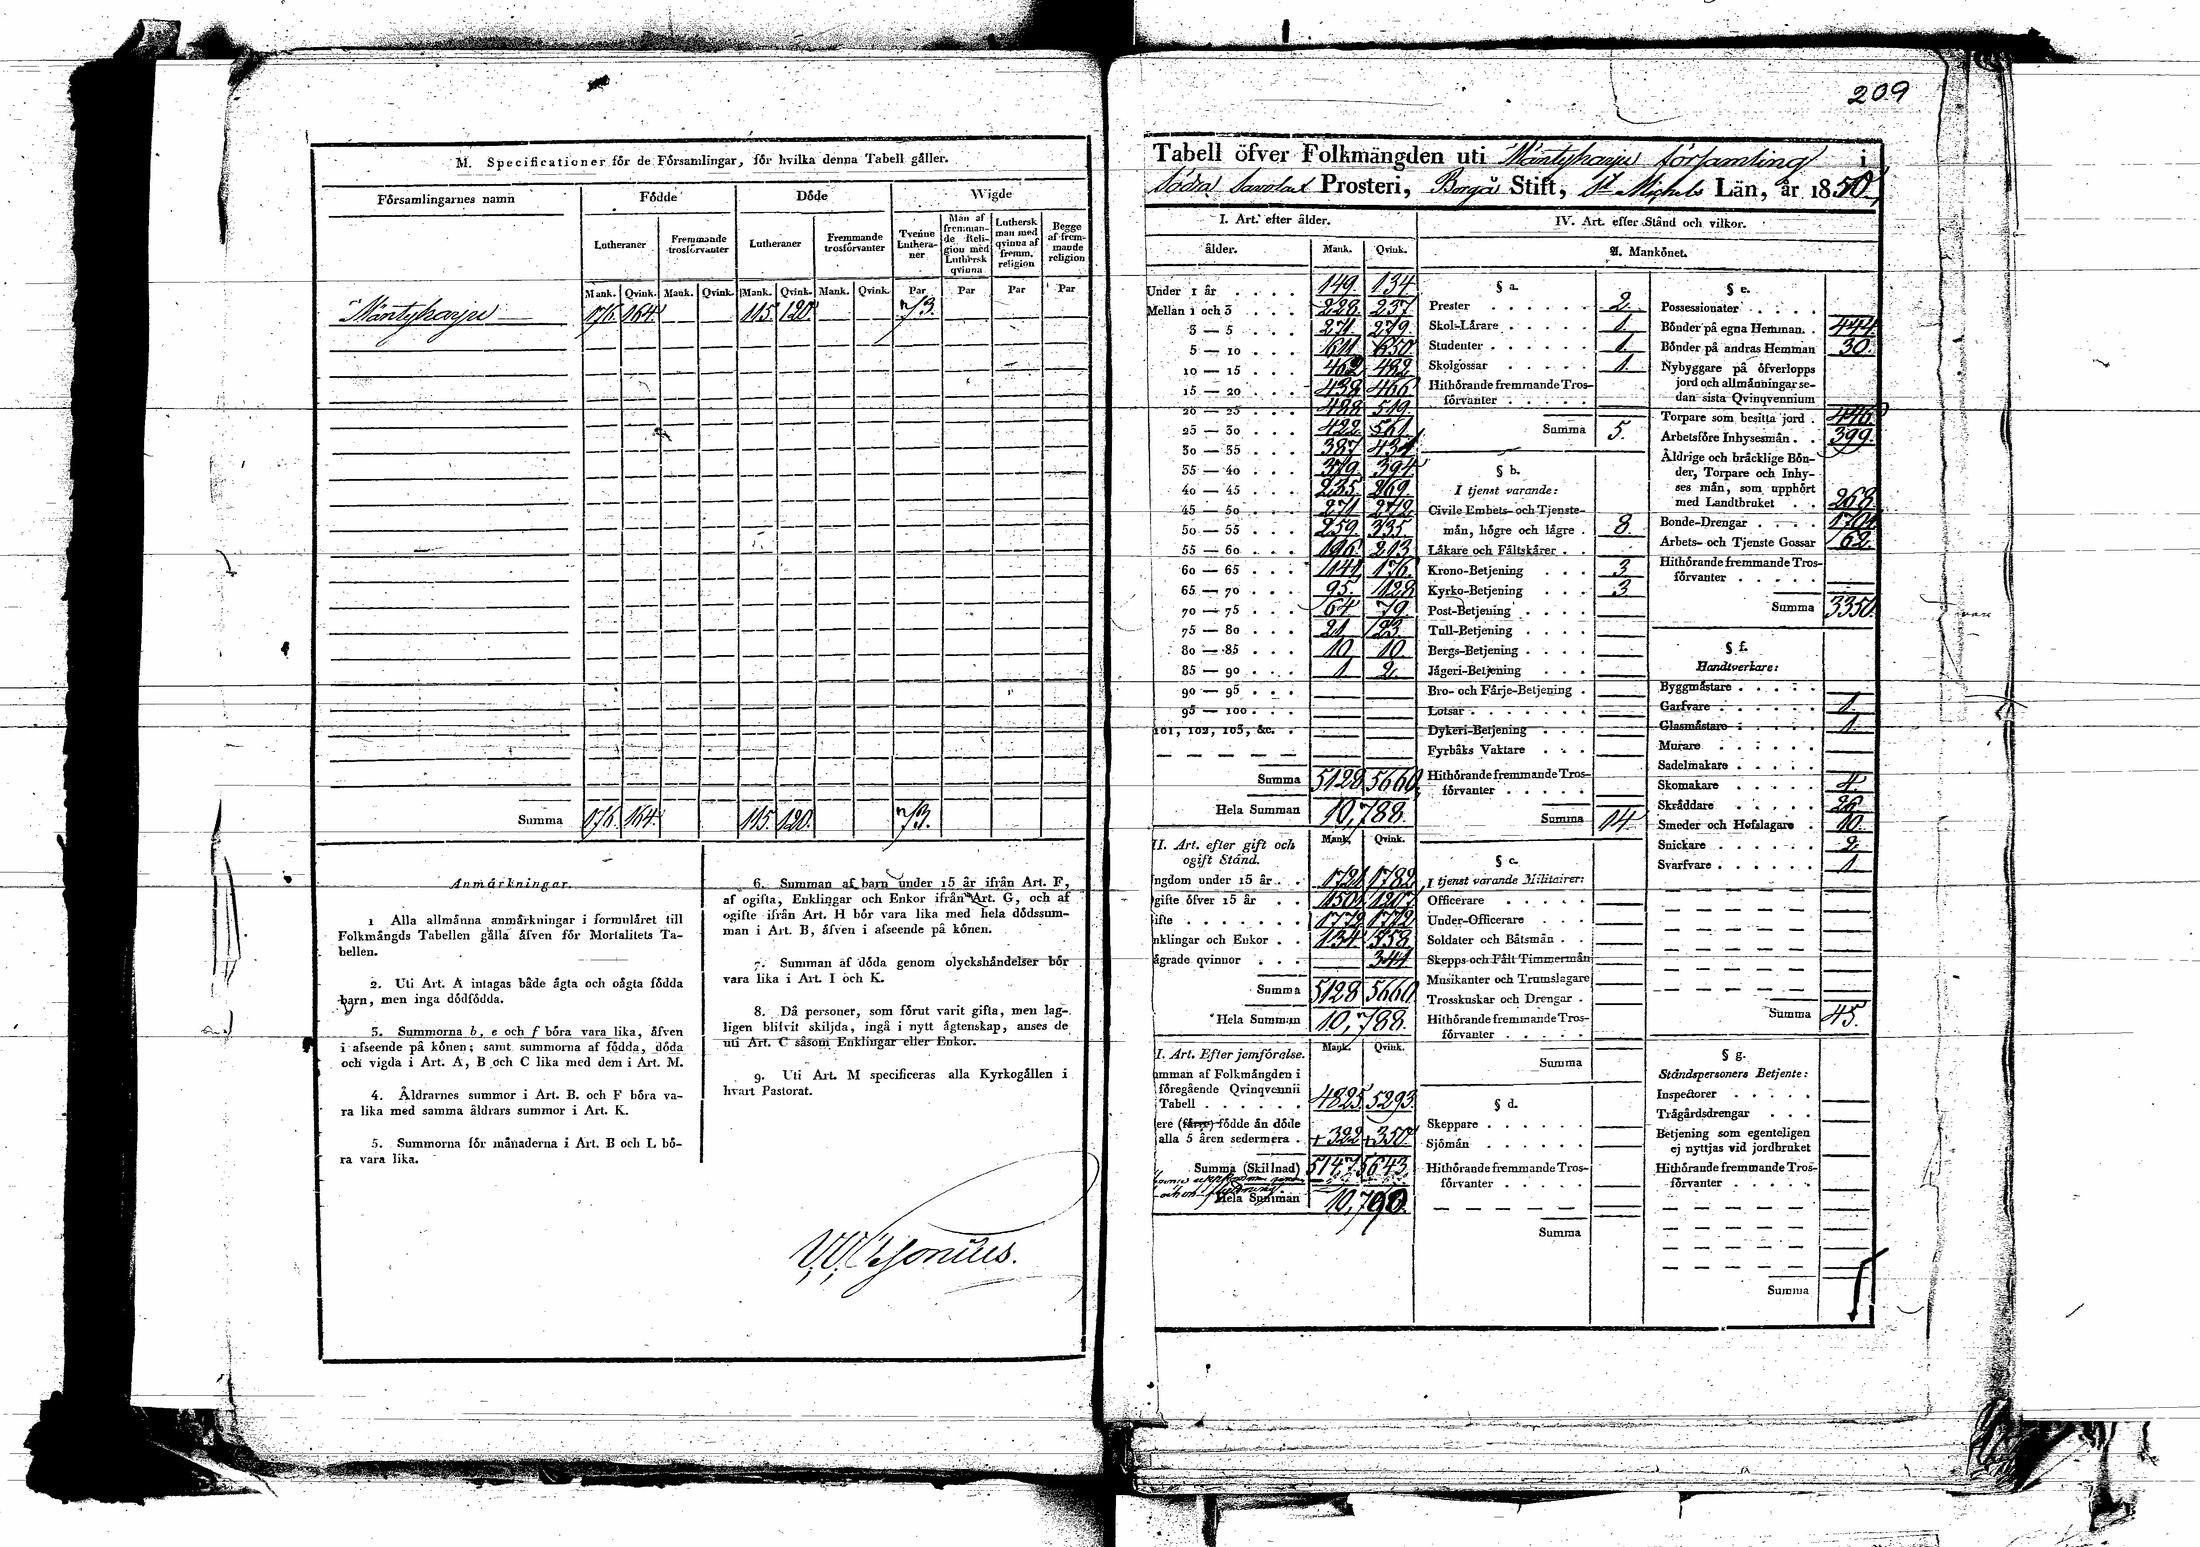 209
M. Specificationer för de Församlingar, för hvilka denna Tabell gäller.
Församlingarnes namn
Födde
Döde
Wigde
Lutheraner
Fremmande trosförvanter
Lutheraner
Fremmande trosförvanter
Tvenne Lutheraner
Man af fremmande Religion med Luthersk qvinna
Luthersk man med qvinna af fremm. religion
Begge af fremmande religion
Mank. Qvink. Mank. Qvink. Mank. Qvink. Mank. Qvink. Par Par Par Par
Mäntyharju 176. 164. 115. 120. 73.
Summa 176. 164. 115. 120. 73.
Anmärkningar.
1 Alla allmänna anmärkningar i formuläret till
Folkmängds Tabellen gälla äfven för Mortalitets Ta-
bellen.
2. Uti Art. A intagas både ägta och oägta födda
barn, men inga dödfödda.
3. Summorna b, e och f böra vara lika, äfven
i afseende på könen; samt summorna af födda, döda
och vigda i Art. A, B och C lika med dem i Art. M.
4. Åldrarnes summor i Art. B. och F böra va-
ra lika med samma åldrars summor i Art. K.
5. Summorna för månaderna i Art. B och L bö-
ra vara lika.
6. Summan af barn under 15 år ifrån Art. F,
af ogifta, Enklingar och Enkor ifrån Art. G, och af
ogifte ifrån Art. H bör vara lika med hela dödssum-
man i Art. B, äfven i afseende på könen.
7. Summan af döda genom olyckshändelser bör
vara lika i Art. I och K.
8. Då personer, som förut varit gifta, men lag-
ligen blifvit skiljda, ingå i nytt ägtenskap, anses de
uti Art. C såsom Enklingar eller Enkor.
9. Uti Art. M specificeras alla Kyrkogällen i
hvart Pastorat.
Tabell öfver Folkmängden uti Mäntyharju församling i
Södra Savolax Prosteri, Borgå Stift, St Michels Län, år 1850.
I. Art. efter ålder.
ålder. Mank. Qvink.
Under 1 år . . . . 149. 134.
Mellan 1 och 3 . . . 228. 237.
3 — 5 . . . 271. 279.
5 — 10 . . . 611. 650.
10 — 15 . . . 462. 482.
15 — 20 . . . 438. 466.
20 — 25 . . . 488. 519.
25 — 30 . . . 422. 561.
30 — 35 . . . 387. 431.
35 — 40 . . . 379. 394.
40 — 45 . . . 235. 269.
45 — 50 . . . 271. 272.
50 — 55 . . . 259. 335.
55 — 60 . . . 196. 213.
60 — 65 . . . 141. 176.
65 — 70 . . . 95. 128.
70 — 75 . . . 64. 79.
75 — 80 . . . 21. 23.
80 — 85 . . . 10. 10.
85 — 90 . . . 1 2.
90 — 95 . . .
95 — 100 . . .
101, 102, 103, &c. .
Summa 5128. 5660.
Hela Summan 10,788.
Mank. Qvink.
II. Art. efter gift och
ogift Stånd.
ngdom under 15 år . . 1721. 1782.
gifte öfver 15 år . . 1501. 1207.
ifte . . . . . . . 1772. 1772.
nklingar och Enkor . . 134. 558.
ägrade qvinnor . . . 341.
Summa 5128 5660
Hela Summan 10,788.
I. Art. Efter jemförelse. Mank. Qvink.
mman af Folkmängden i
föregående Qvinqvennii
Tabell . . . . . . 4825. 5293.
ere (färre) födde än döde
alla 5 åren sedermera . +322. +350.
Summa (Skillnad) 5147. 5643.
Hela Summan 10,790.
IV. Art. efter Stånd och vilkor.
A. Mankönet.
§ a.
Prester . . . . . . 2.
Skol-Lärare . . . . . 1.
Studenter . . . . . . 1.
Skolgossar . . . . . 1.
Hithörande fremmande Tros-
förvanter . . . . .
Summa 5.
§ b.
I tjenst varande:
Civile Embets- och Tjenste-
män, högre och lägre . 8.
Läkare och Fältskärer . .
Krono-Betjening . . . 3.
Kyrko-Betjening . . . 3
Post-Betjening . . . .
Tull-Betjening . . . .
Bergs-Betjening . . . .
Jägeri-Betjening . . .
Bro- och Färje-Betjening .
Lotsar . . . . . . .
Dykeri-Betjening . . .
Fyrbåks Vaktare . . .
Hithörande fremmande Tros-
förvanter . . . . .
Summa 14.
§ c.
I tjenst varande Militairer:
Officerare . . . . .
Under-Officerare . . .
Soldater och Båtsmän . .
Skepps och Fält Timmermän
Musikanter och Trumslagare
Trosskuskar och Drengar .
Hithörande fremmande Tros-
förvanter . . . .
Summa
§ d.
Skeppare . . . . . .
Sjömän . . . . . .
Hithörande fremmande Tros-
förvanter . . . . .
Summa
§ e.
Possessionater . . . . .
Bönder på egna Hemman. . 444.
Bönder på andras Hemman 30.
Nybyggare på öfverlopps
jord och allmänningar se-
dan sista Qvinqvennium
Torpare som besitta jord . 446.
Arbetsföre Inhysesmän . . 399.
Åldrige och bräcklige Bön-
der, Torpare och Inhy-
ses män, som upphört
med Landtbruket . . 268.
Bonde-Drengar . . . . 1701.
Arbets- och Tjenste Gossar 62.
Hithörande fremmande Tros-
förvanter . . . . .
Summa 3350.
§ f.
Handtverkare:
Byggmästare . . . . .
Garfvare . . . . . . 1.
Glasmästare . . . . . 1.
Murare . . . . . .
Sadelmakare . . . . .
Skomakare . . . . . 4.
Skräddare . . . . . 26.
Smeder och Hofslagare . 10.
Snickare . . . . . . 2.
Svarfvare . . . . . . 1
Summa 45.
§ g.
Ståndspersoners Betjente:
Inspectorer . . . . .
Trägårdsdrengar . . .
Betjening som egenteligen
ej nyttjas vid jordbruket
Hithörande fremmande Tros-
förvanter . . . .
Summa